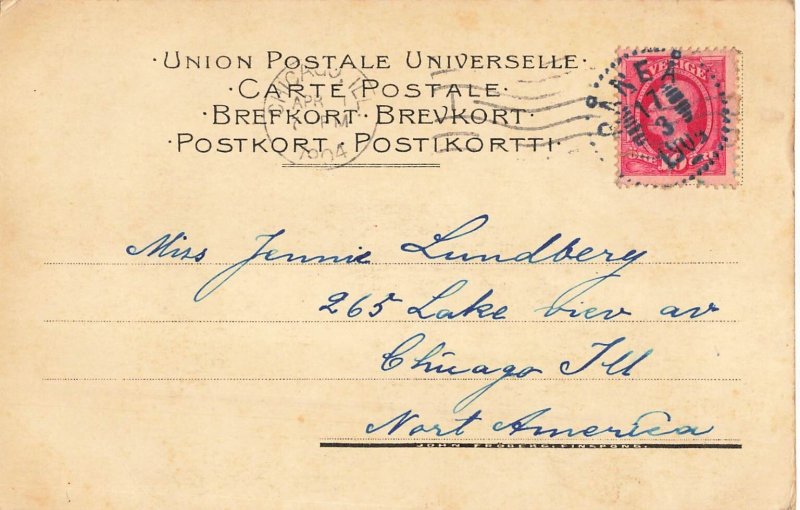 ·UNION POSTALE UNIVERSELLE·
·CARTE POSTALE·
·BREFKORT·BREVKORT·
·POSTKORT·POSTIKORTTI·
CHICAGO, ILL.
APR
PM
1904
SVERIGE
RÅNEÅ
17
3
Miss Jennie Lundberg
265 Lake view av
Chicago Ill
Nort America
JOHN FROBERG, FINSPONG.